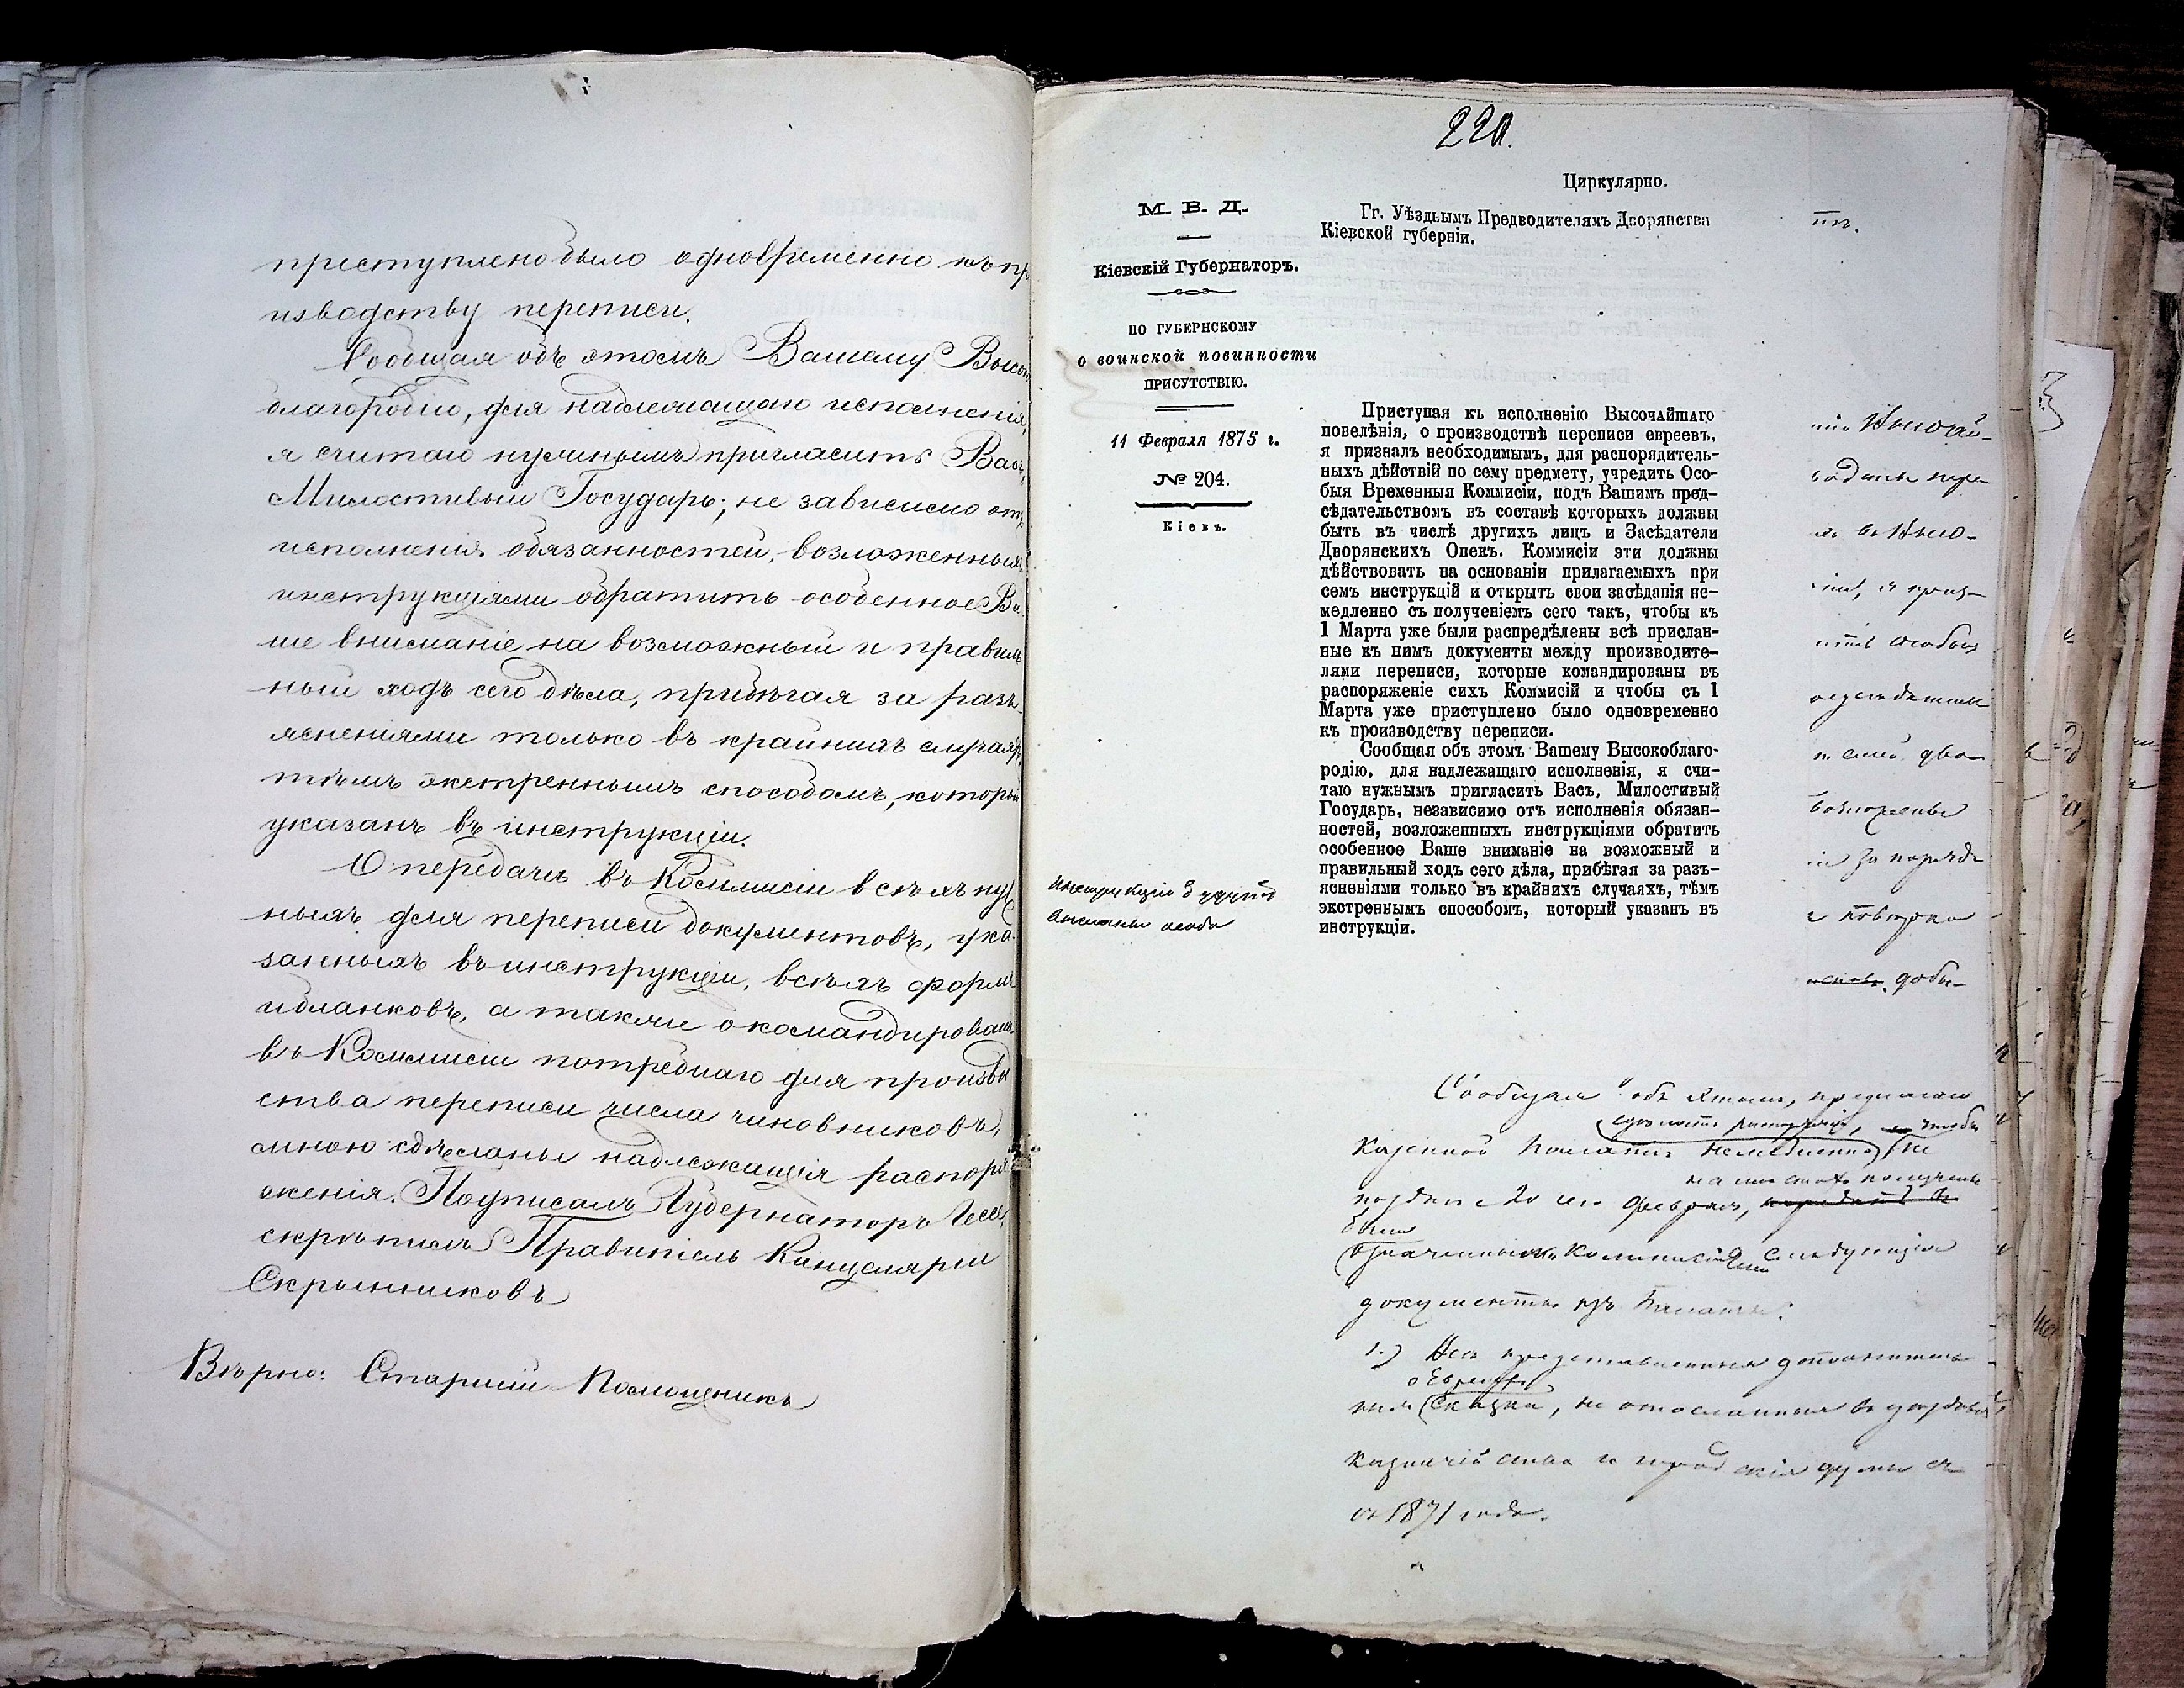 преступлено было одновременно къ пр
изводству переписи.
Сообщая объ этомъ Вашему Высоко
благородію, для надлежащаго исполненія,
я считаю нужнымъ пригласить Васъ,
Милостивый Государь, не зависимо отъ
исполненія обязанностей, возложенныхъ
инструкціями обратить особенное Ва
ше вниманіе на возможный и правиль
ный ходъ сего дѣла, прибѣгая за разъ
ясненіями только въ крайнихъ случаях,
тѣмъ экстреннымъ способомъ, который
указанъ въ инструкціи.
О передачѣ въ Коммисіи всѣхъ нуж
ныхъ для переписи документовъ, ука
занныхъ въ инструкціи, всѣхъ формъ
и бланковъ, а также о командирован.
въ Коммисіи потребнаго для произвд
ства переписи числа чиновниковъ,
мною сдѣланы надлежащія распоря
женія. Подписалъ Губернаторъ Гессе,
скрѣпилъ Правитель Канцеляріи
Скрынниковъ
Вѣрно: Старшій Помощникъ
220.
Циркулярно.
М. В. Д.
Кіевскій Губернаторъ.
ПО ГУБЕРНСКОМУ
о воинской повинности
ПРИСУТСТВІЮ.
11 Февраля 1875 г.
№ 204.
Кіевъ.
Инструкціи
высланы особо
Гг. Уѣзднымъ Предводителямъ Дворянства
Кіевской губерніи.
Приступая къ исполненію Высочайшаго
повелѣнія, о производствѣ переписи евреевъ,
я призналъ необходимымъ, для распорядитель-
ныхъ дѣйствій по сему предмету, учредить Осо-
быя Временныя Коммисіи, подъ Вашимъ пред-
сѣдательствомъ въ составѣ которыхъ должны
быть въ числѣ другихъ лицъ и Засѣдатели
Дворянскихъ Опекъ. Коммисіи эти должны
дѣйствовать на основаніи прилагаемыхъ при
семъ инструкцій и открыть свои засѣданія не-
медленно съ полученіемъ сего такъ, чтобы къ
1 Марта уже были распредѣлены всѣ прислан-
ные къ нимъ документы между производите-
лями переписи, которые командированы въ
распоряженіе сихъ Коммисій и чтобы съ 1
Марта уже приступлено было одновременно
къ производству переписи.
Сообщая объ этомъ Вашему Высокоблаго-
родію, для надлежащаго исполненія, я счи-
таю нужнымъ пригласить Васъ, Милостивый
Государь, независимо отъ исполненія обязан-
ностей, возложенныхъ инструкціями обратить
особенное Ваше вниманіе на возможный и
правильный ходъ сего дѣла, прибѣгая за разъ-
ясненіями только въ крайнихъ случаяхъ, тѣмъ
экстреннымъ способомъ, который указанъ въ
инструкціи.
Сообщая объ этомъ, предлагаю
чтобы
Казенной Палатѣ немедленно не
позднѣе 20 сего Февраля,
были
означенными Коммисіями слѣдующіе
документы изъ Палаты:
1.) Всѣ представленныя дополнитель
о Евреяхъ
ныя Сказки, не отосланныя въ уѣздныя
казначейства и городскія думы
съ 1871 года.